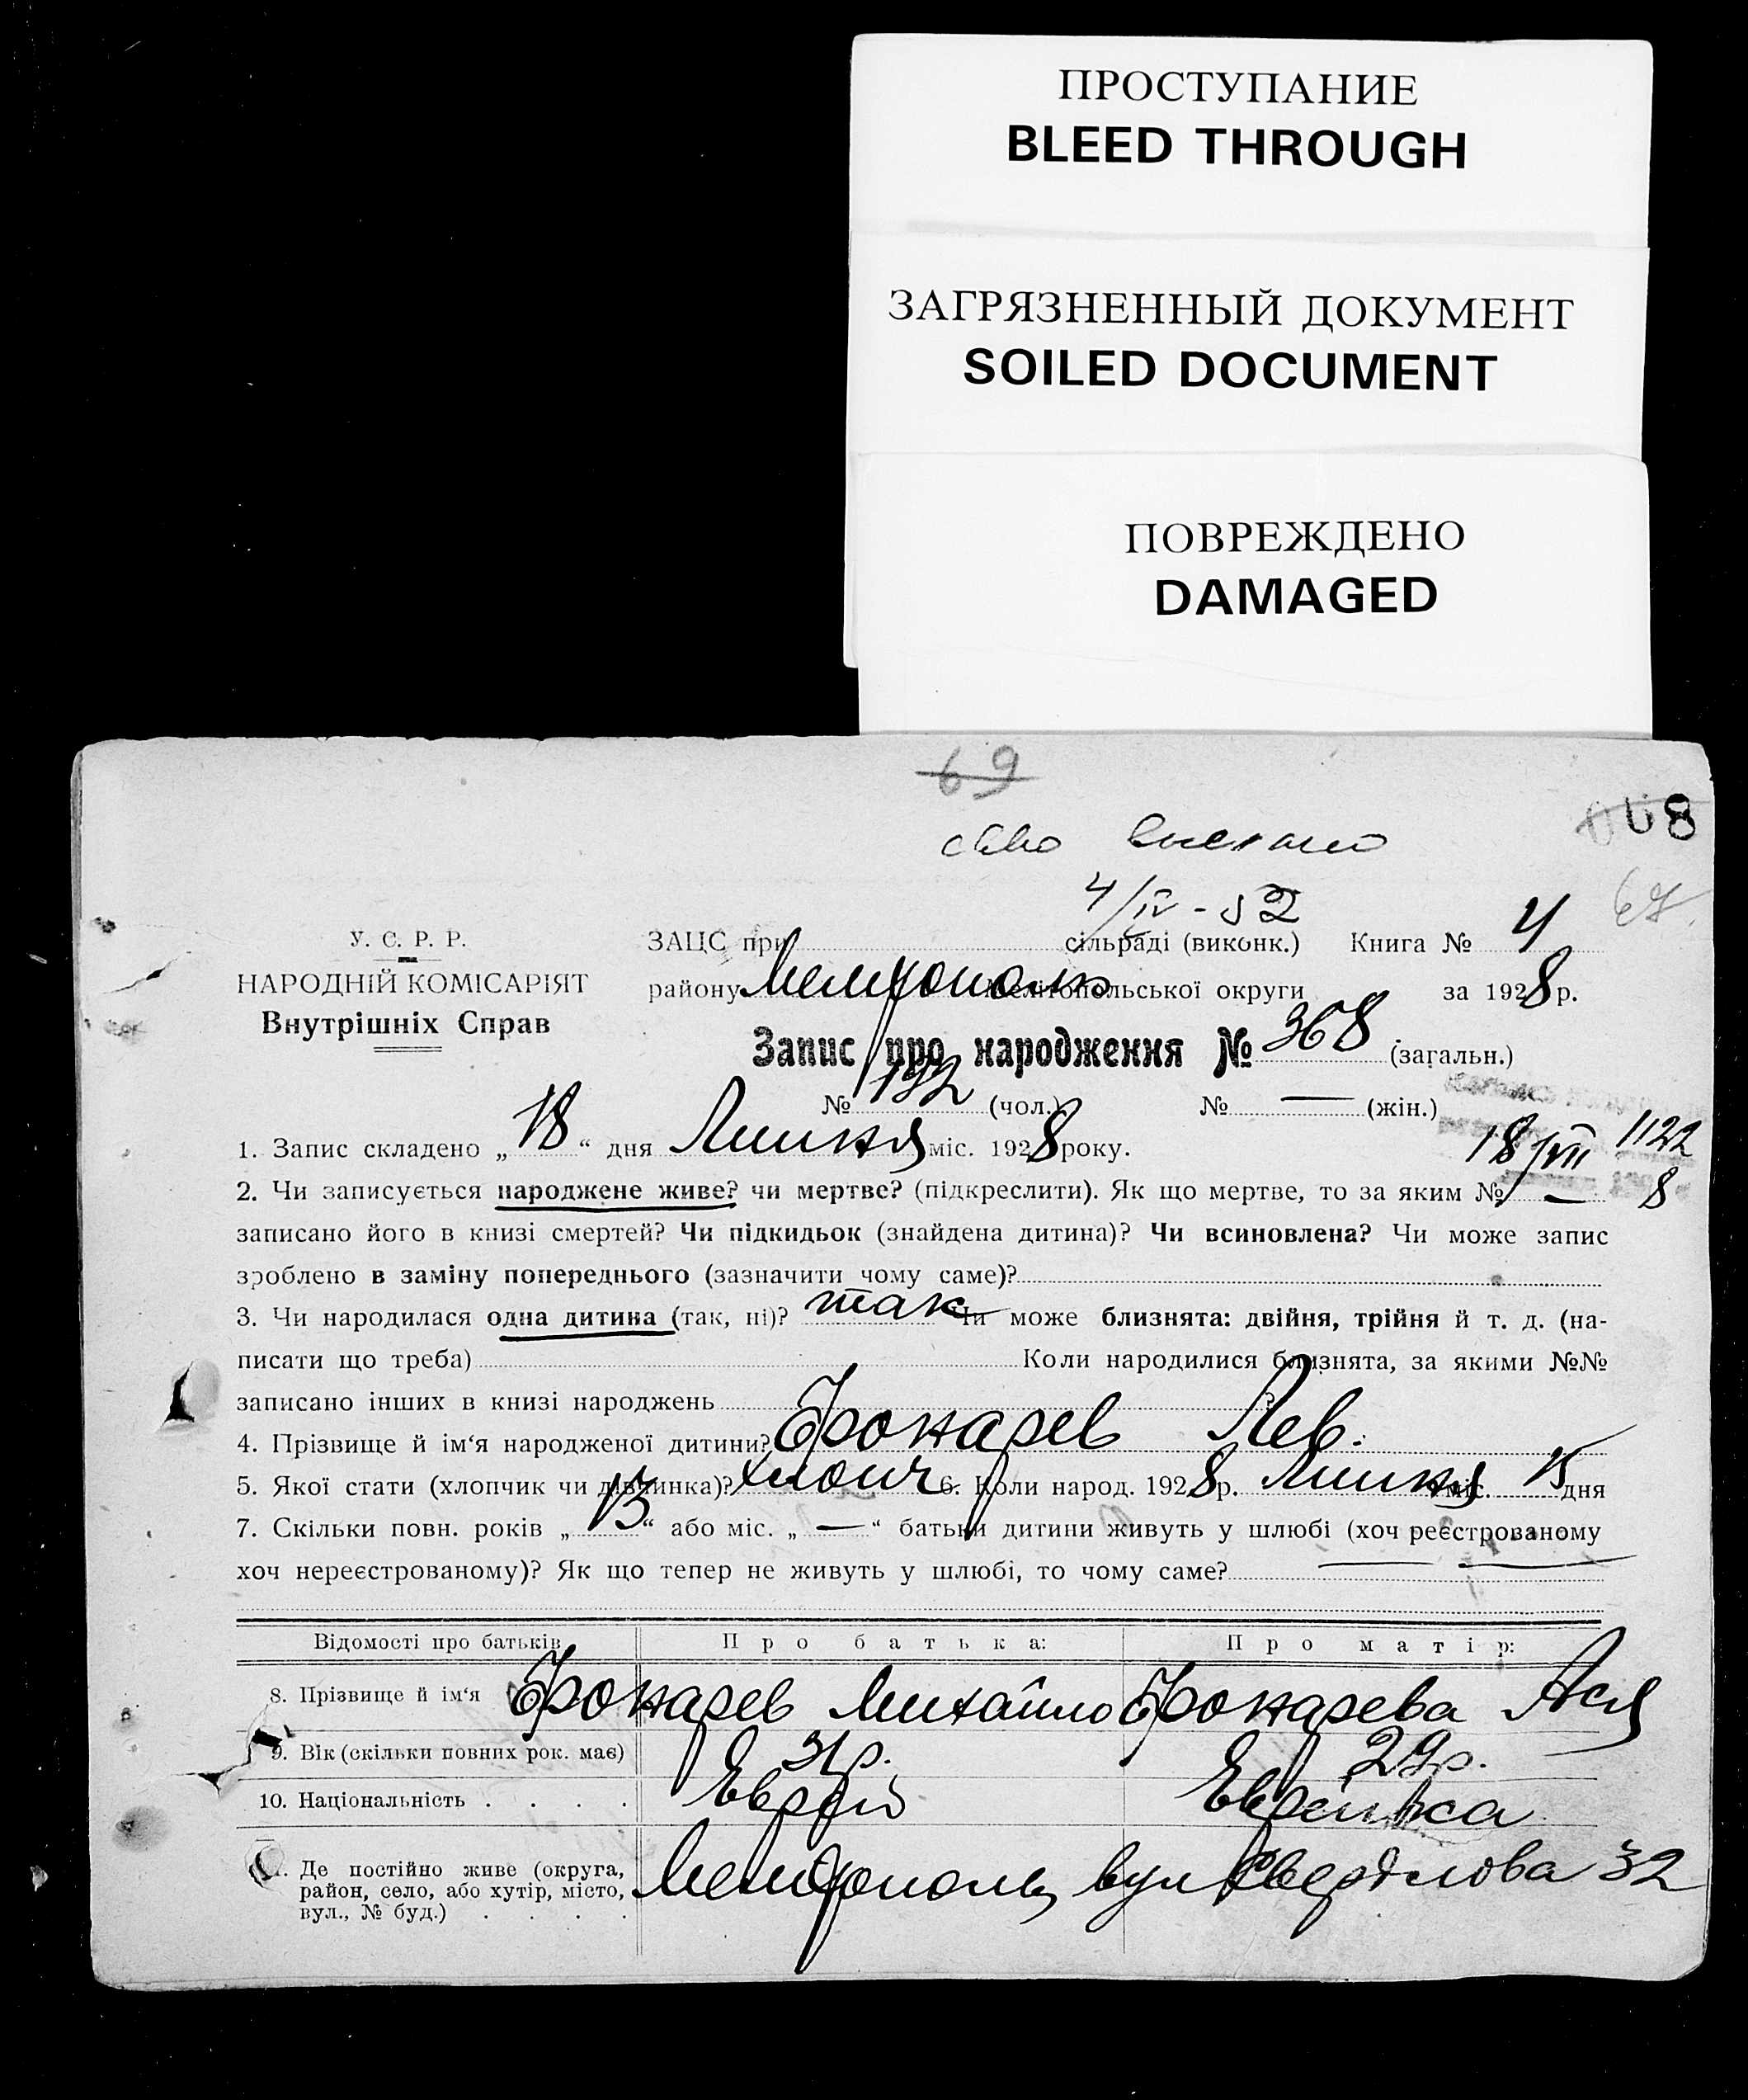 ПРОСТУПАНИЕ
BLEED THROUGH
ЗАГРЯЗНЕННЫЙ ДОКУМЕНТ
SOILED DOCUMENT
ПОВРЕЖДЕНО
DAMAGED
69
008
4/IV - 52
67
У. С. Р. Р.
НАРОДНІЙ КОМІСАРІЯТ
Внутрішніх Справ
ЗАЦС при сільраді (виконк.) Книга № 4
району Мелітополь Мелітопольської округи за 1928 р.
Запис про народження № 368 (загальн.)
№ 192 (чол.) № — (жін.)
1. Запис складено „18“ дня Липня міс. 1928 року.
18/VII 1122
8
2. Чи записується народжене живе? чи мертве? (підкреслити). Як що мертве, то за яким № —
записано його в книзі смертей? Чи підкидьок (знайдена дитина)? Чи всиновлена? Чи може запис
зроблено в заміну попереднього (зазначити чому саме)?
3. Чи народилася одна дитина (так, ні)? так Чи може близнята: двійня, трійня й т. д. (на-
писати що треба) Коли народилися близнята, за якими №№
записано інших в книзі народжень
4. Прізвище й ім‘я народженої дитини? Лев.
5. Якої стати (хлопчик чи дівчинка)? хлопч 6. Коли народ. 1928 р. Липня міс. 15 дня
7. Скільки повн. років „13“ або міс. „—“ батьки дитини живуть у шлюбі (хоч реєстрованому
хоч нереєстрованому)? Як що тепер не живуть у шлюбі, то чому саме? — —
Відомості про батьків Про батька: Про матір:
8. Прізвище й ім‘я Михайло Ася
9. Вік (скільки повних рок. має) 31 р. 29 р.
10. Національність . . . . Еврей Еврейка
Де постійно живе (округа,
район, село, або хутір, місто,
вул., № буд.) . . . .
Мелітополь вул Свердлова 32